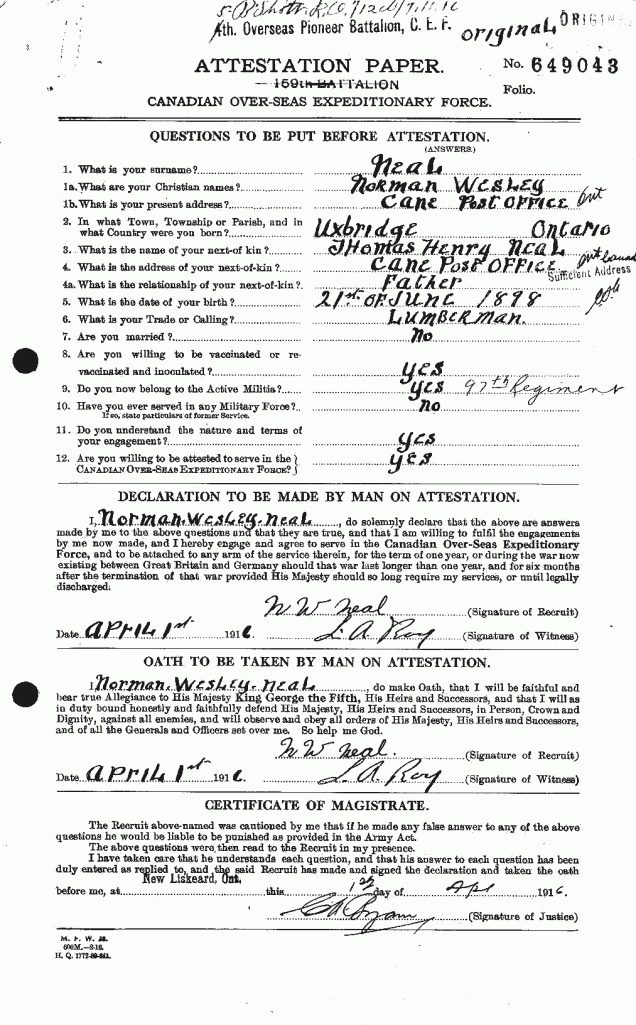 4th. Overseas Pioneer Battalion, C. E. F.
ORIGINAL
ORIGINAL
ATTESTATION PAPER.
No. 649043
159th BATTALION
Folio.
CANADIAN OVER-SEAS EXPEDITIONARY FORCE.
QUESTIONS TO BE PUT BEFORE ATTESTATION.
(ANSWERS.)
1. What is your surname? Neal
1a. What are your Christian names? Norman Wesley
1b. What is your present address? Cane Post Office Ont
2. In what Town, Township or Parish, and in
what Country were you born? Uxbridge Ontario
3. What is the name of your next-of kin? Thomas Henry Neal
4. What is the address of your next-of-kin? Cane Post Office Ont
Sufficient Address
4a. What is the relationship of your next-of-kin? Father
5. What is the date of your birth? 21st of June 1898
6. What is your Trade or Calling? Lumberman.
7. Are you married? No
8. Are you willing to be vaccinated or re-
vaccinated and inoculated? Yes
9. Do you now belong to the Active Militia? Yes 97th Regiment
10. Have you ever served in any Military Force? No
If so, state particulars of former Service.
11. Do you understand the nature and terms of
your engagement? Yes
12. Are you willing to be attested to serve in the }
CANADIAN OVER-SEAS EXPEDITIONARY FORCE? } Yes
DECLARATION TO BE MADE BY MAN ON ATTESTATION.
I, Norman Wesley Neal, do solemnly declare that the above are answers
made by me to the above questions and that they are true, and that I am willing to fulfil the engagements
by me now made, and I hereby engage and agree to serve in the Canadian Over-Seas Expeditionary
Force, and to be attached to any arm of the service therein, for the term of one year, or during the war now
existing between Great Britain and Germany should that war last longer than one year, and for six months
after the termination of that war provided His Majesty should so long require my services, or until legally
discharged.
N W Neal (Signature of Recruit)
Date April 1st 1916. L. A. Roy (Signature of Witness)
OATH TO BE TAKEN BY MAN ON ATTESTATION.
I, Norman Wesley Neal, do make Oath, that I will be faithful and
bear true Allegiance to His Majesty King George the Fifth, His Heirs and Successors, and that I will as
in duty bound honestly and faithfully defend His Majesty, His Heirs and Successors, in Person, Crown and
Dignity, against all enemies, and will observe and obey all orders of His Majesty, His Heirs and Successors,
and of all the Generals and Officers set over me. So help me God.
N W Neal. (Signature of Recruit)
Date April 1st 1916 L. A. Roy (Signature of Witness)
CERTIFICATE OF MAGISTRATE.
The Recruit above-named was cautioned by me that if he made any false answer to any of the above
questions he would be liable to be punished as provided in the Army Act.
The above questions were then read to the Recruit in my presence.
I have taken care that he understands each question, and that his answer to each question has been
duly entered as replied to, and the said Recruit has made and signed the declaration and taken the oath
New Liskeard, Ont.
before me, at this 1st day of Apl 1916.
(Signature of Justice)
M. F. W. 23.
600M.—2-16.
H. Q. 1772-39-841.